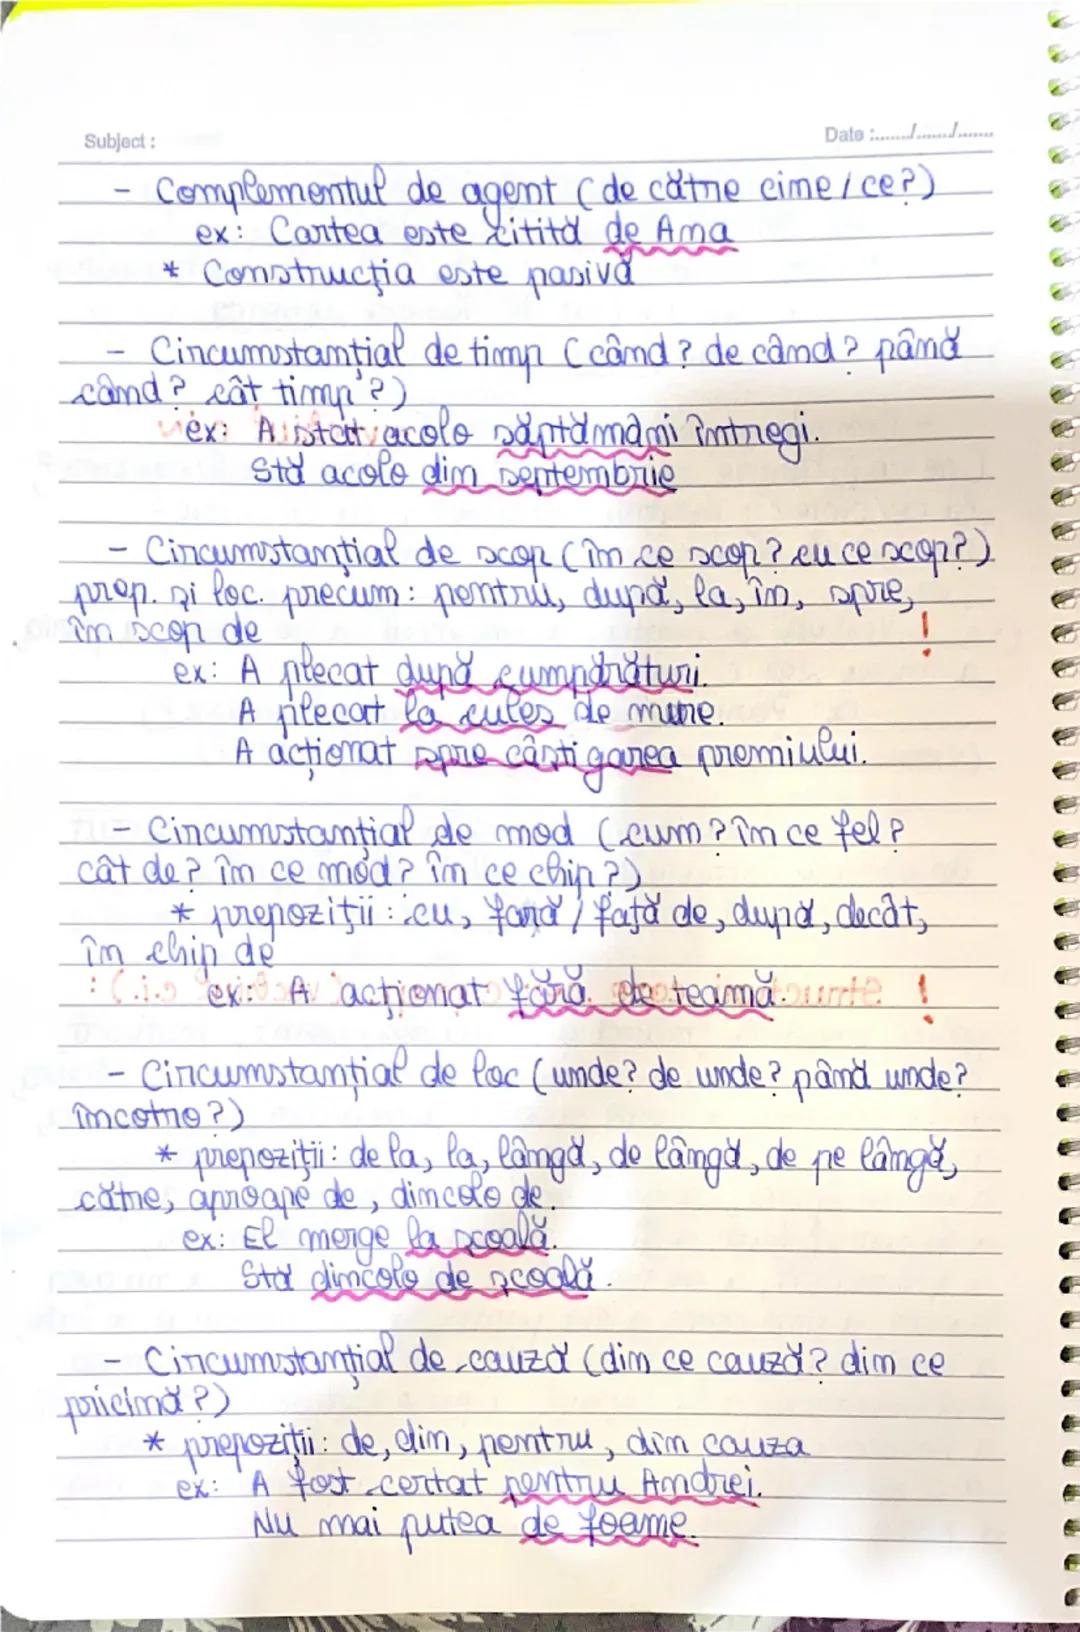 Subject :
Date :......./......./.......
- Complementul de agent (de către cine / ce?)
ex: Cartea este citită de Ana
* Construcția este pasivă
- Circumstanțial de timp (când? de când? până
când? cât timp?)
ex: A stat acolo săptămâni întregi.
Stă acolo din septembrie
- Circumstanțial de scop (în ce scop? cu ce scop?)
prep. și loc. precum: pentru, după, la, în, spre,
în scop de !
ex: A plecat după cumpărături.
A plecat la cules de mure.
A acționat spre câștigarea premiului.
- Circumstanțial de mod (cum? în ce fel?
cât de? în ce mod? în ce chip?)
* prepoziții: cu, fără / față de, după, decât,
în chip de
ex: A acționat fără de teamă. !
- Circumstanțial de loc (unde? de unde? până unde?
încotro?)
* prepoziții: de la, la, lângă, de lângă, de pe lângă,
către, aproape de, dincolo de.
ex: El merge la școală.
Stă dincolo de școală.
- Circumstanțial de cauză (din ce cauză? din ce
pricină?)
* prepoziții: de, din, pentru, din cauza
ex: A fost certat pentru Andrei.
Nu mai putea de foame.